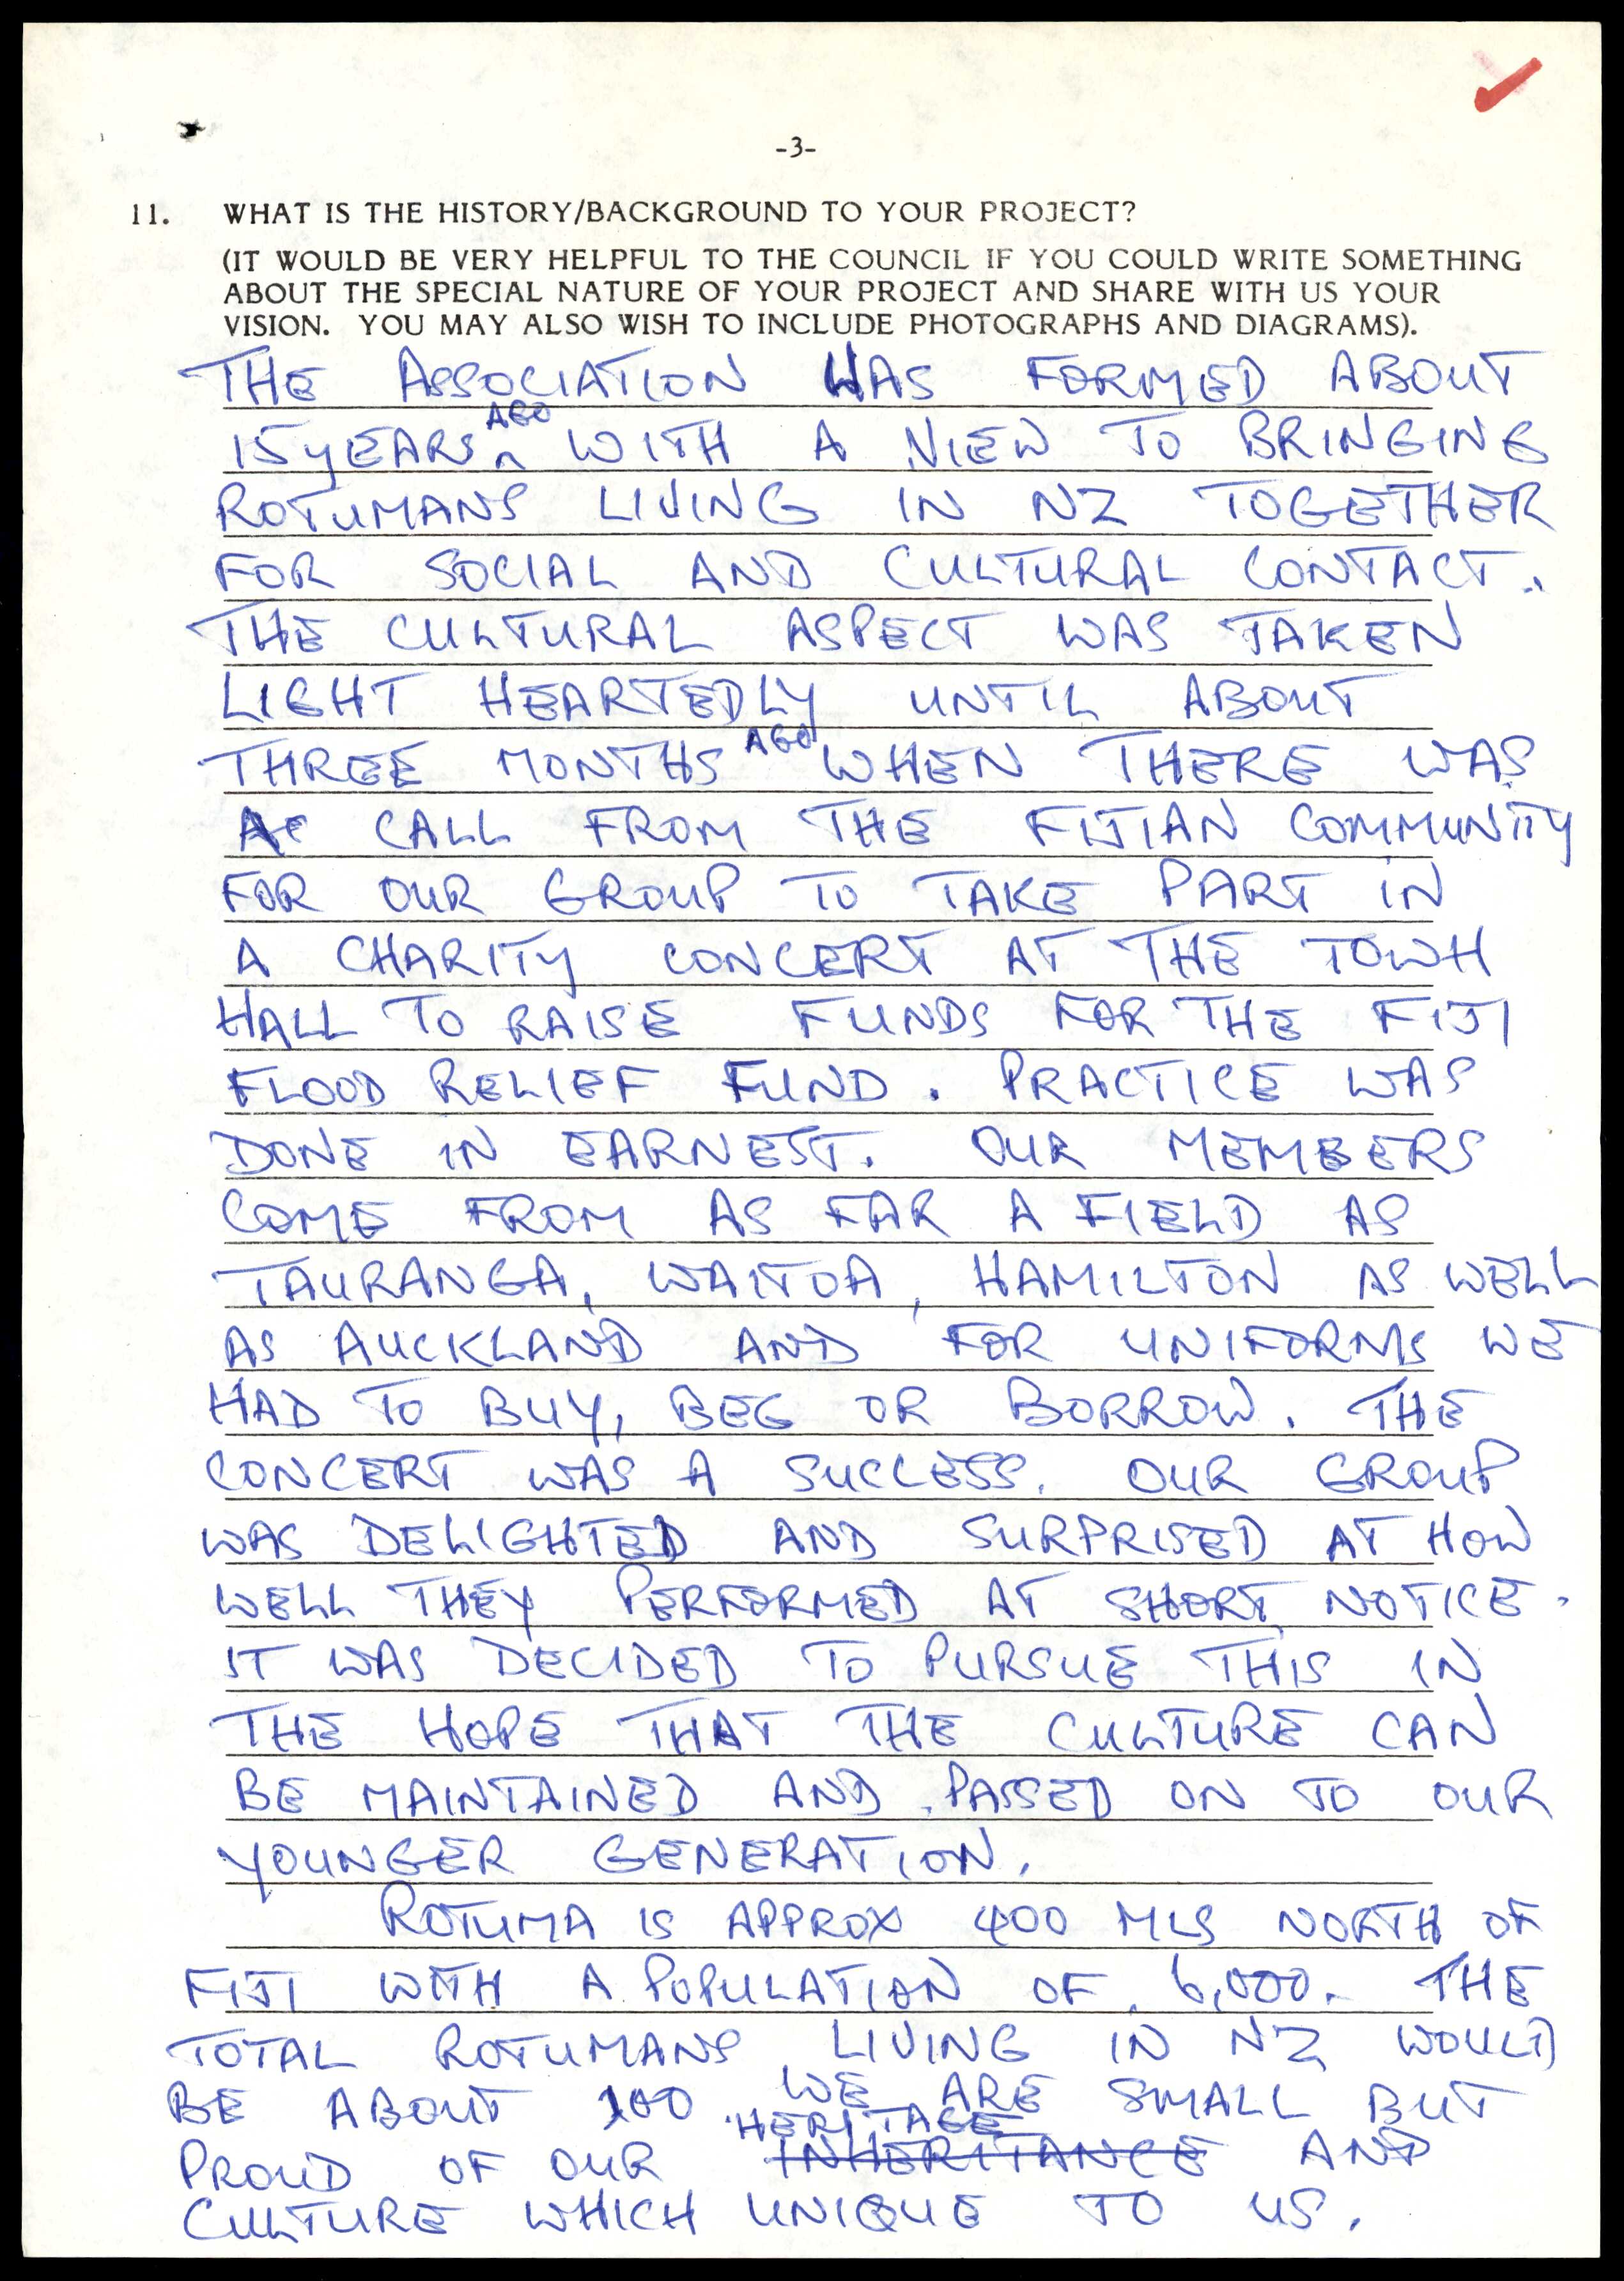 -3-
11. WHAT IS THE HISTORY/BACKGROUND TO YOUR PROJECT?
(IT WOULD BE VERY HELPFUL TO THE COUNCIL IF YOU COULD WRITE SOMETHING
ABOUT THE SPECIAL NATURE OF YOUR PROJECT AND SHARE WITH US YOUR
VISION. YOU MAY ALSO WISH TO INCLUDE PHOTOGRAPHS AND DIAGRAMS).
THE ASSOCIATION WAS FORMED ABOUT
15 YEARS AGO WITH A VIEW TO BRINGING
ROTUMANS LIVING IN NZ TOGETHER
FOR SOCIAL AND CULTURAL CONTACT.
THE CULTURAL ASPECT WAS TAKEN
LIGHT HEARTEDLY UNTIL ABOUT
THREE MONTHS AGO WHEN THERE WAS
A CALL FROM THE FIJIAN COMMUNITY
FOR OUR GROUP TO TAKE PART IN
A CHARITY CONCERT AT THE TOWN
HALL TO RAISE FUNDS FOR THE FIJI
FLOOD RELIEF FUND. PRACTICE WAS
DONE IN EARNEST. OUR MEMBERS
COME FROM AS FAR A FIELD AS
TAURANGA, WAITOA, HAMILTON AS WELL
AS AUCKLAND AND FOR UNIFORMS WE
HAD TO BUY, BEG OR BORROW. THE
CONCERT WAS A SUCCESS. OUR GROUP
WAS DELIGHTED AND SURPRISED AT HOW
WELL THEY PERFORMED AT SHORT NOTICE.
IT WAS DECIDED TO PURSUE THIS IN
THE HOPE THAT THE CULTURE CAN
BE MAINTAINED AND PASSED ON TO OUR
YOUNGER GENERATION.
ROTUMA IS APPROX 400 MLS NORTH OF
FIJI WITH A POPULATION OF 6,000. THE
TOTAL ROTUMANS LIVING IN NZ WOULD
BE ABOUT 100 WE ARE SMALL BUT
PROUD OF OUR HERITAGE INHERITANCE AND
CULTURE WHICH UNIQUE TO US.